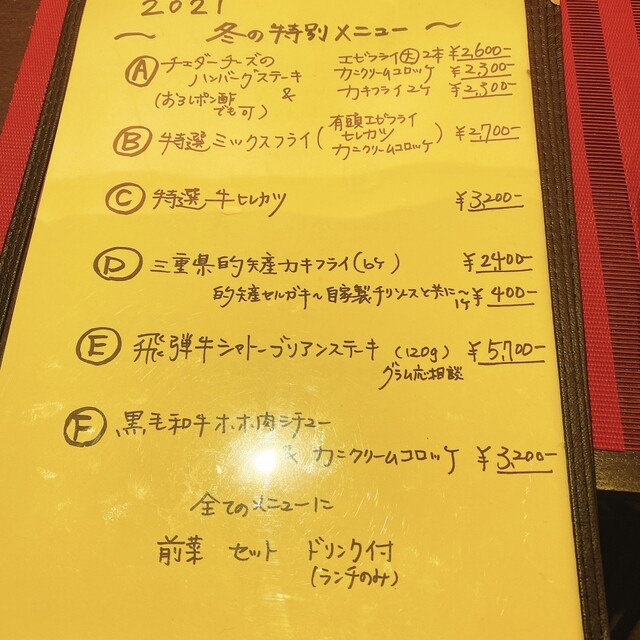 2021
～ 冬の特別メニュー ～
Ⓐ チェダーチーズのハンバーグステーキ & エビフライ(大)2本 ¥2,600-
カニクリームコロッケ ¥2,300-
カキフライ2ケ ¥2,300-
(おろしポン酢でも可)
Ⓑ 特選ミックスフライ(有頭エビフライ
ヒレカツ
カニクリームコロッケ) ¥2,700-
Ⓒ 特選牛ヒレカツ ¥3,200-
Ⓓ 三重県的矢産カキフライ(6ケ) ¥2400-
的矢産セルガキ～自家製チリソースと共に～ 1ケ ¥400-
Ⓔ 飛弾牛シャトーブリアンステーキ (120g) ¥5,700-
グラム応相談
Ⓕ 黒毛和牛ホホ肉シチュー
& カニクリームコロッケ ¥3,200-
全てのメニューに
前菜 セット ドリンク付
(ランチのみ)